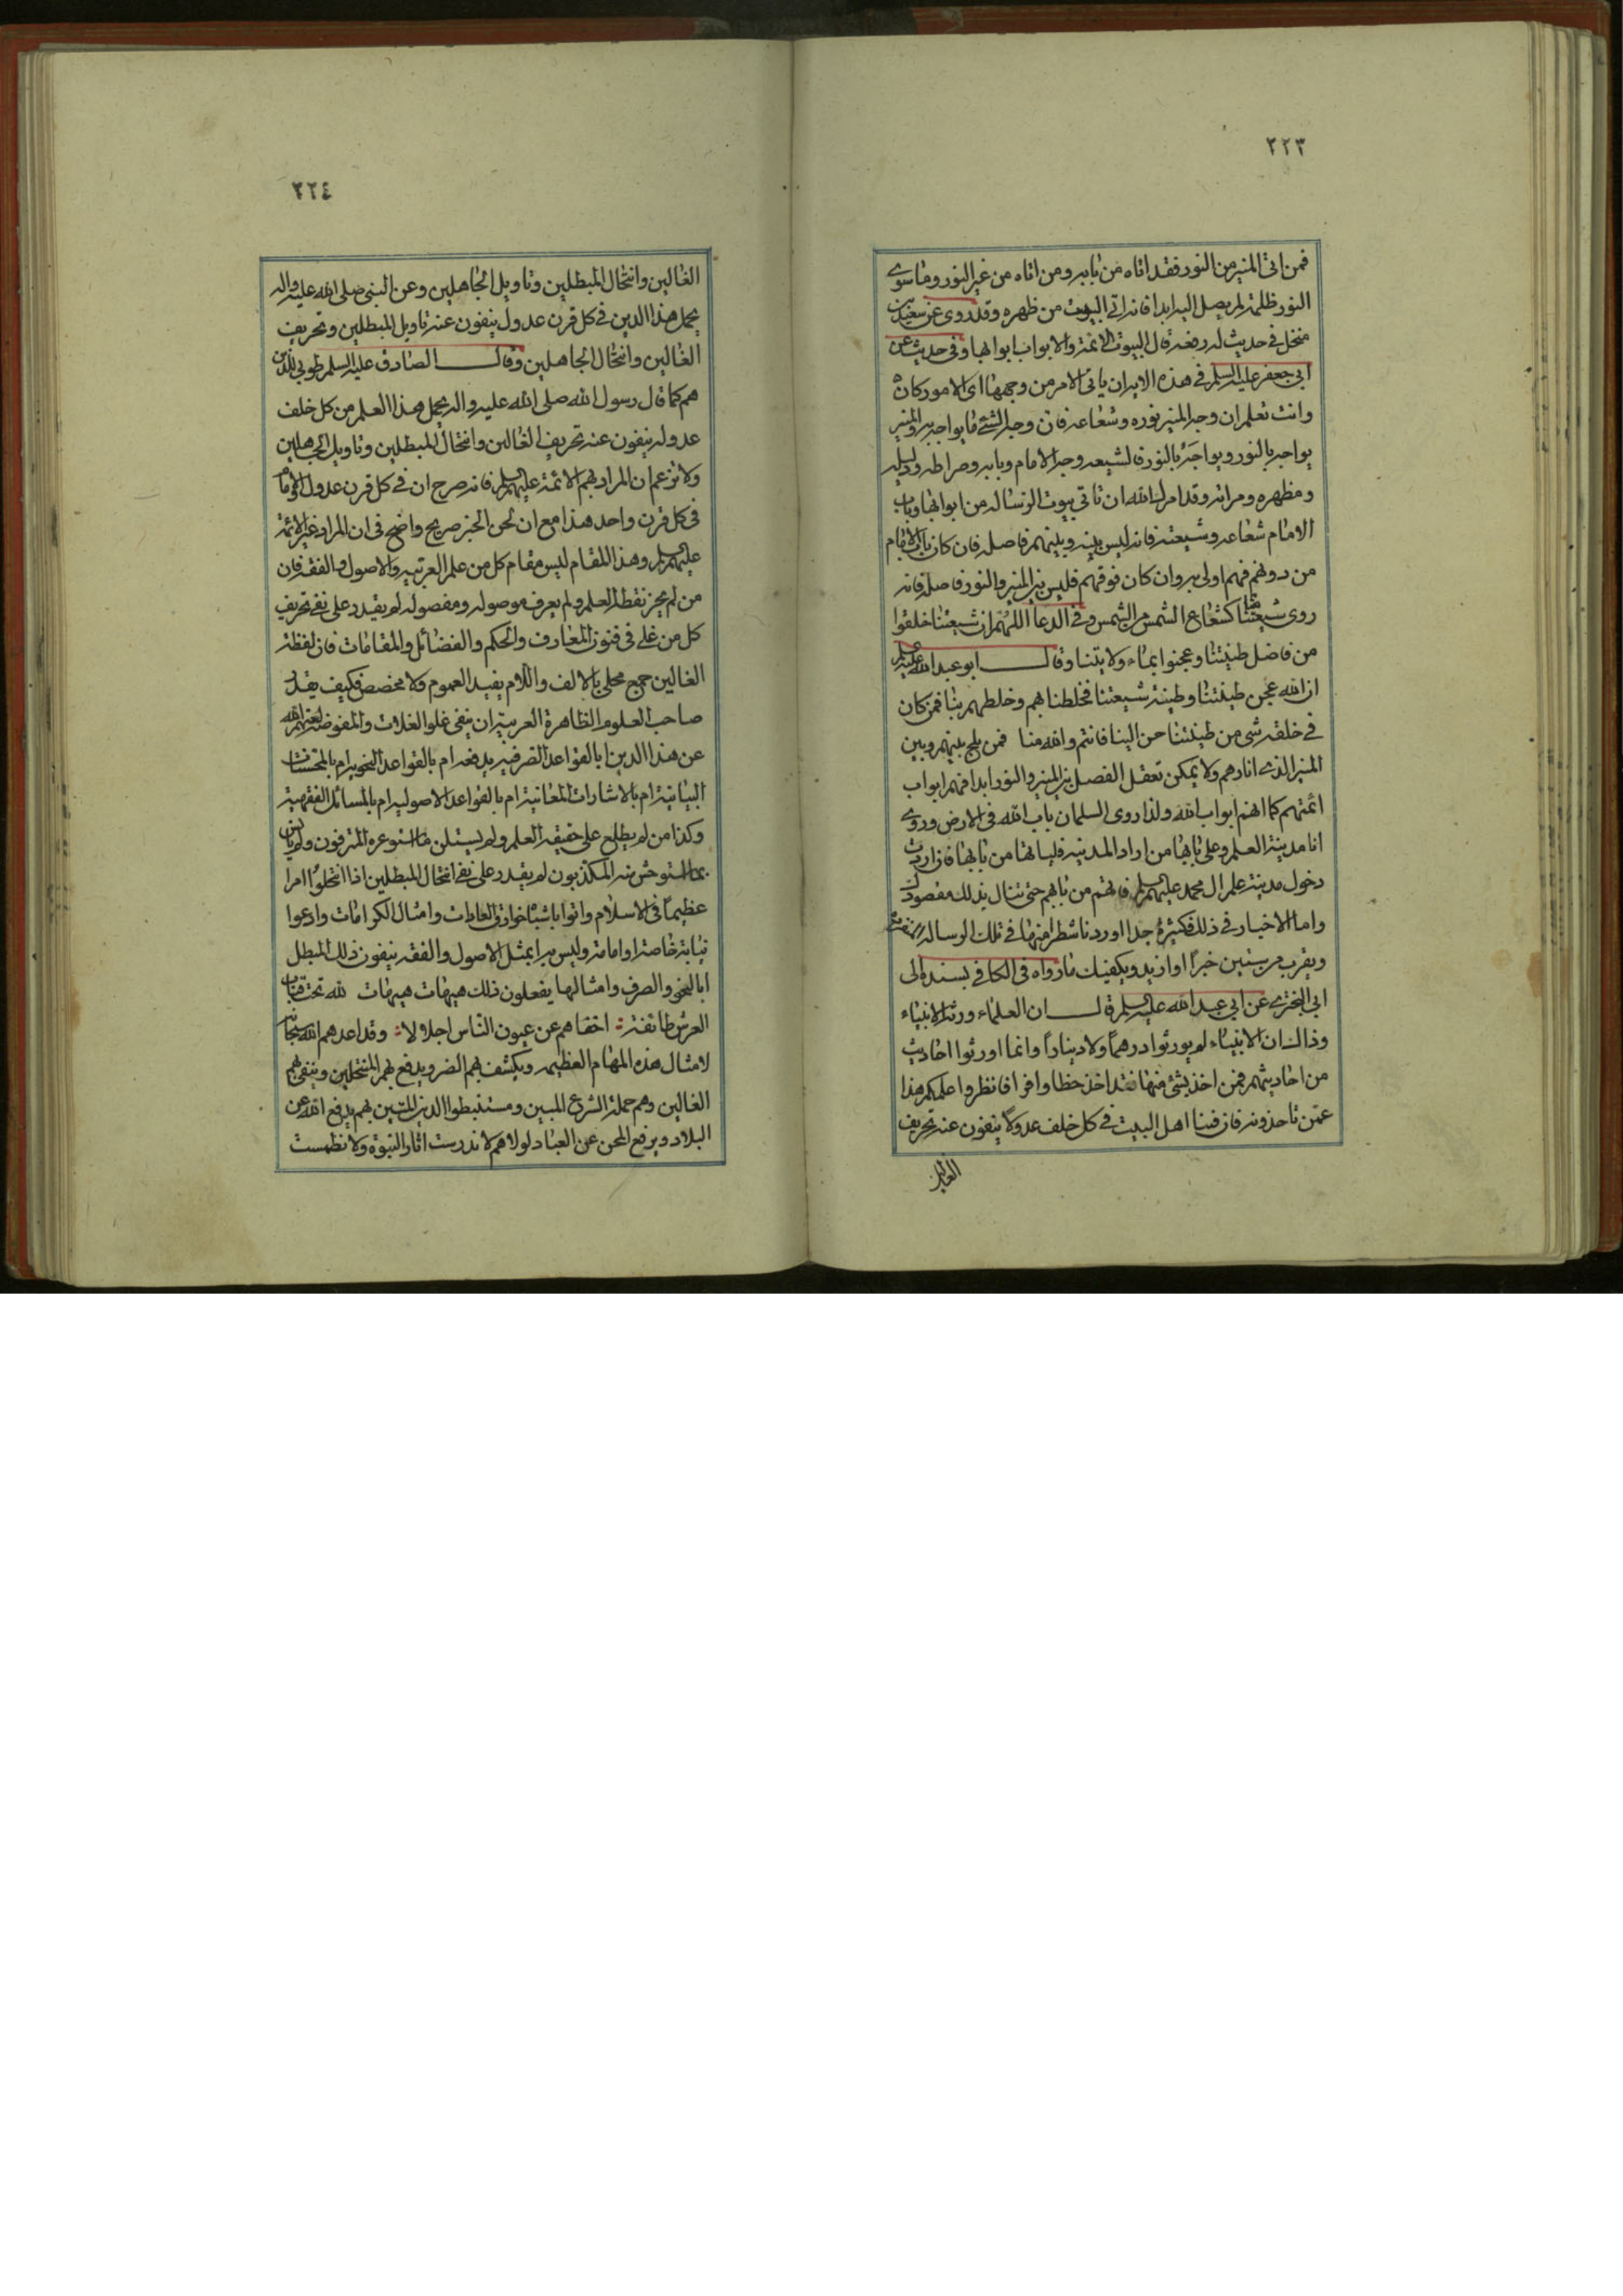 ٢٢٣
فمن اتى المنير من النور فقد اتاه من بابه ومن اتاه من غير النور وما سوى
النور ظلمة لم يصل اليه ابدا فانه اتى البيوت من ظهره وقد روى عن سعيد بن
منخل في حديث له رفعه قال البيوت الائمة والابواب ابوابها وفي حديث عن
ابي جعفر عليه السلم في هذه الاية ان ياتى الامر من وجهها اى الامور كان
وانت تعلم ان وجه المنير نوره وشعاعه فان وجه الشئ ما يواجه به والمنير
يواجه بالنور ويواجَهُ بالنور فالشيعه وجه الامام وبابه وصراطه ودليله
ومظهره ومراته وقد امرك الله ان تاتى بيوت الرسالة من ابوابها وباب
الامام شعاعه وشيعته فانه ليس بينه وبينهم فاصله فان كان باب الامام
من دونهم فهم اولى به وان كان فوقهم فليس بين المنير والنور فاصله فانه
روى شيعتنا منا كشعاع الشمس من الشمس وفي الدعا اللهم ان شيعتنا خلقوا
من فاضل طينتنا وعجنوا بماء ولايتنا وقال ابو عبد الله عليه السلم
ان الله عجن طينتنا وطينة شيعتنا فخلطنا بهم وخلطهم بنا فمن كان
في خلقه شئ من طينتنا حن الينا فانتم والله منا فمن يلج بينهم وبين
المنير الذى انارهم ولا يمكن تعقل الفصل بين المنير والنور ابدا فهم ابواب
ائمتهم كما انهم ابواب الله ولذا روى السلمان باب الله فى الارض وروى
انا مدينة العلم وعلى بابها من اراد المدينة فلياتها من بابها فان اردت
دخول مدينة علم ال محمد عليهم السلم فاتهم من بابهم حتى تنال بذلك مقصودك
واما الاخبار في ذلك فكثيرة جدا اوردنا شطرا منها في تلك الرسالة
ويقرب من ستين خبراً او ازيد ويكفيك ما رواه فى الكافي بسنده الى
ابي البخترى عن ابي عبد الله عليه السلم قال ان العلماء ورثة الانبياء
وذاك ان الانبياء لم يورثوا درهماً ولا ديناراً وانما اورثوا احاديث
من احاديثهم فمن اخذ بشئ منها فقد اخذ حظا وافرا فانظروا علمكم هذا
عمن تاخذونه فان فينا اهل البيت في كل خلف عدولاً ينفون عنه تحريف
الغالين
٢٢٤
الغالين وانتحال المبطلين وتاويل الجاهلين وعن النبي صلى الله عليه واله
يحمل هذا الدين في كل قرن عدول ينفون عنه تاويل المبطلين وتحريف
الغالين وانتحال الجاهلين وقال الصادق عليه السلم طوبى للذين
هم كما قال رسول الله صلى الله عليه واله يحمل هذا العلم من كل خلف
عدوله ينفون عنه تحريف الغالين وانتحال المبطلين وتاويل الجاهلين
ولا تزعم ان المراد بهم الائمة عليهم السلم فانه صرح ان في كل قرن عدول والامام
فى كل قرن واحد هذا مع ان لحن الخبر صريح واضح فى ان المراد غير الائمة
عليهم السلم وهذا المقام ليس مقام كل من علم العربيه والاصول والفقه فان
من لم يحز نقطة العلم ولم يعرف موصوله ومفصوله لم يقدر على نفى تحريف
كل من غلى في فنون المعارف والحكم والفضائل والمقامات فان لفظة
الغالين جمع محلى بالالف واللام يفيد العموم ولا مخصص فكيف يقدر
صاحب العلوم الظاهرة العربية ان ينفى غلو الغلات والمفوضة لعنهم الله
عن هذا الدين ابالقواعد الصرفيه يدفعه ام بالقواعد النحويه ام بالمحسنات
البيانية ام بالاشارات المعانية ام بالقواعد الاصوليه ام بالمسائل الفقهية
وكذا من لم يطلع على حقيقة العلم ولم يستلن ما استوعره المترفون ولم يانس
بما استوحش منه المكذبون لم يقدر على نفى انتحال المبطلين اذا انتحلوا امرا
عظيماً فى الاسلام واتوا باشباه خوارق العادات وامثال الكرامات وادعوا
نيابة خاصة او امامة وليس من ابمثل الاصول والفقه ينفون ذلك المبطل
ابالنحو والصرف وامثالها يفعلون ذلك هيهات هيهات لله تحت قباب
العرش طائفة اخفاهم عن عيون الناس اجلالا وقد اعدهم الله سبحانه
لامثال هذه المهام العظيمه ويكشف بهم الضر ويدفع بهم المنتحلين وينفى بهم
الغالين وهم حملة الشرع المبين ومستنبطوا الدين المتين بهم يدفع الله عن
البلاد ويرفع المحن عن العباد لولاهم لاندرست اثار النبوة ولانطمست